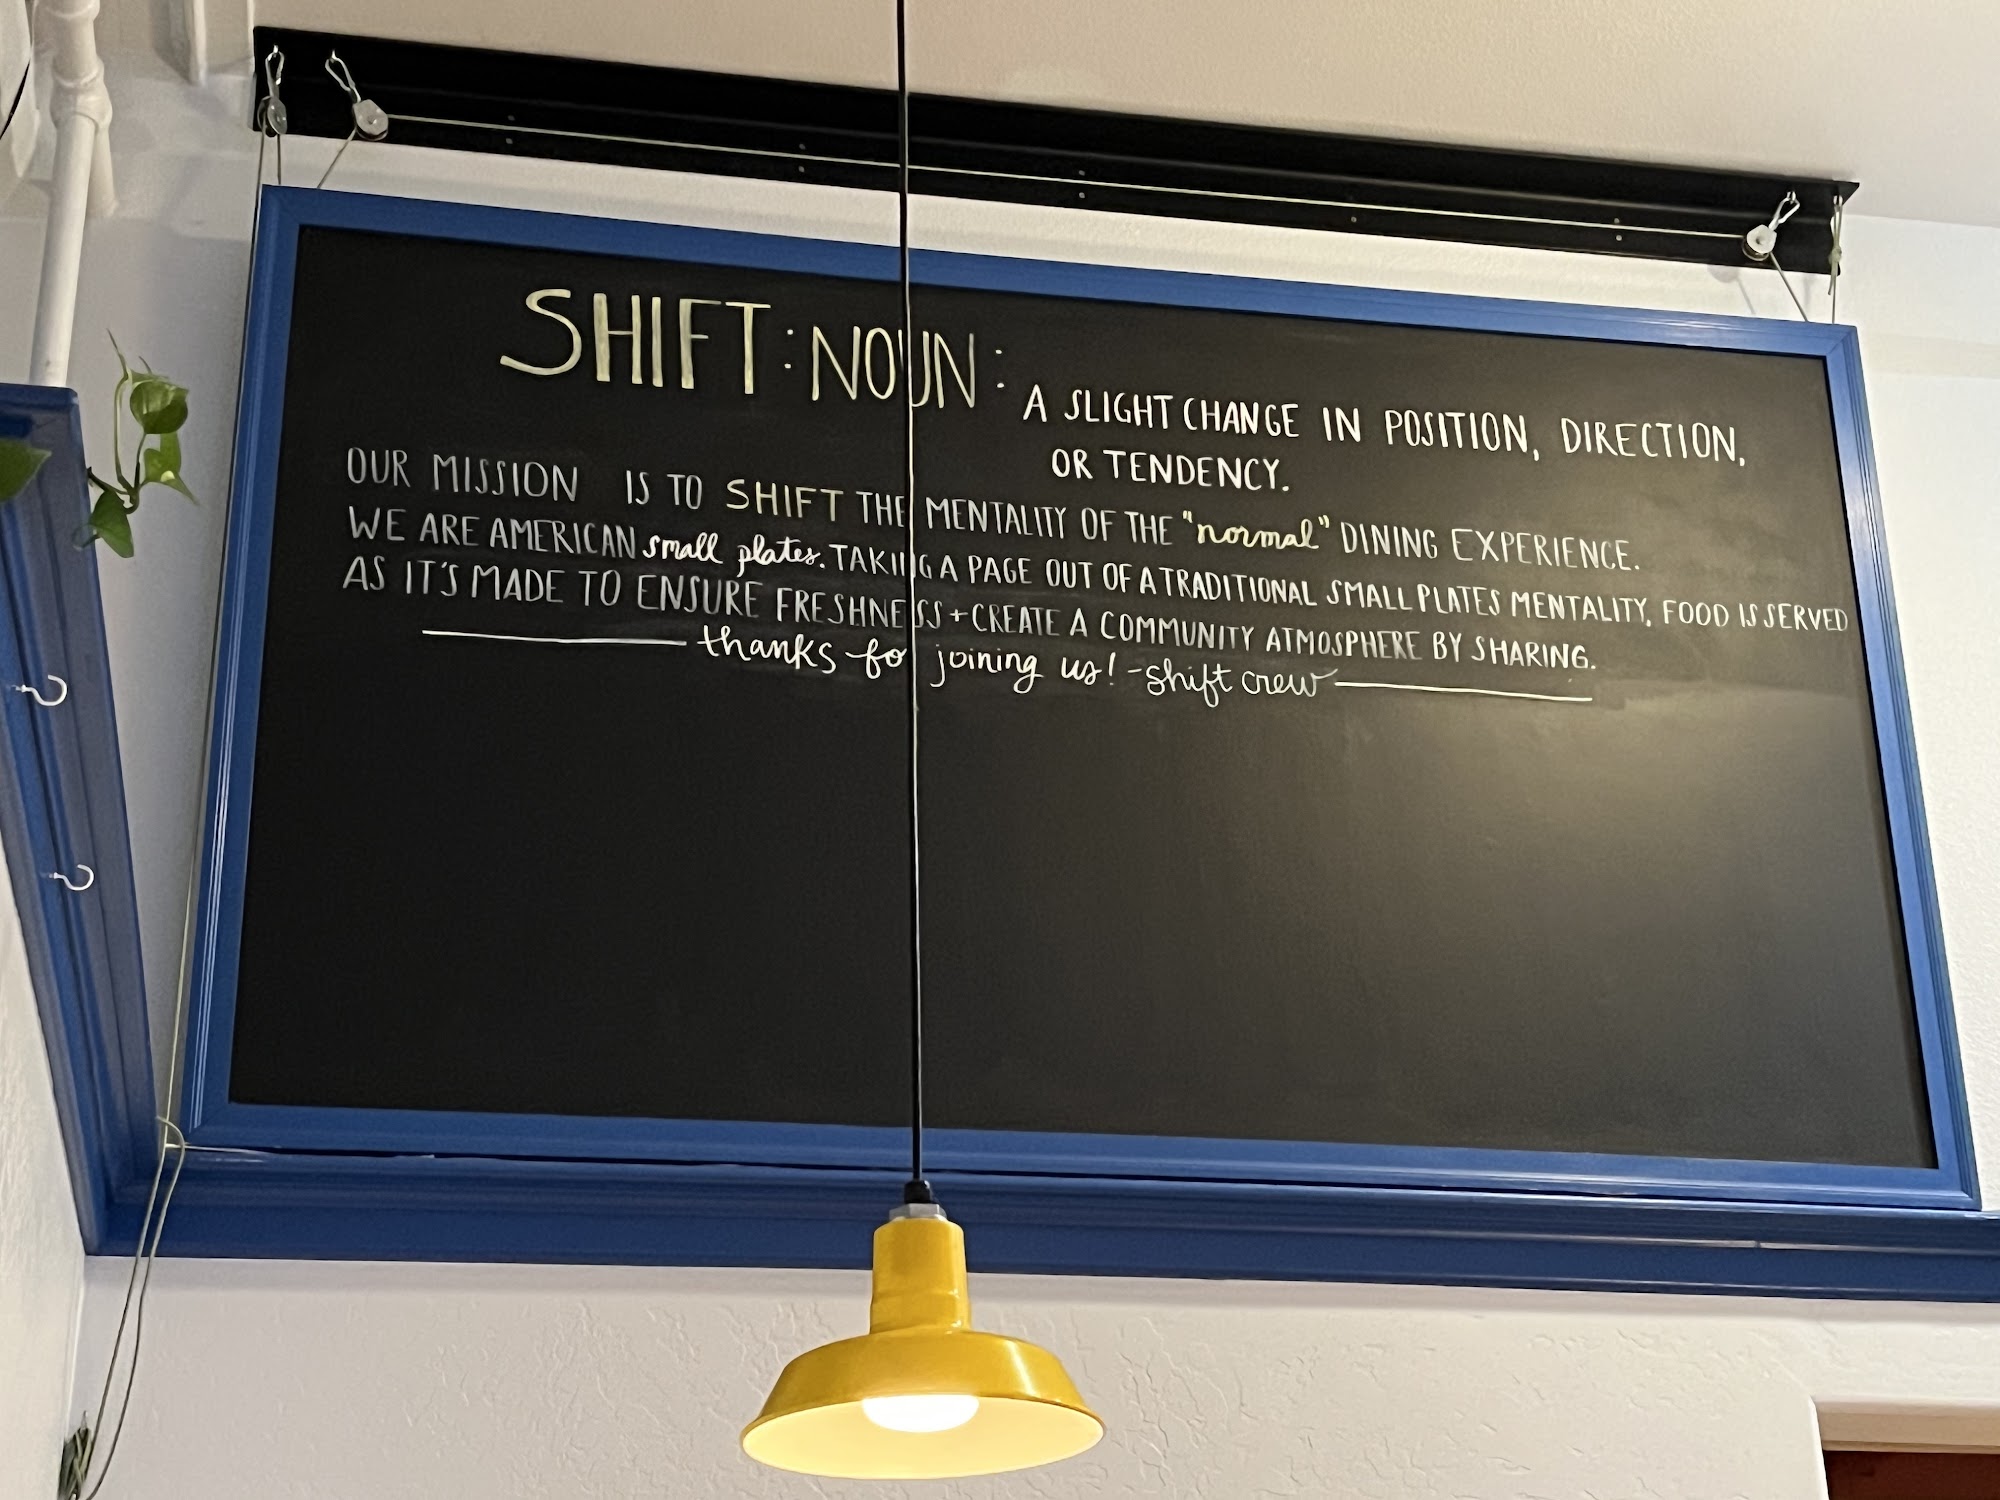 SHIFT : NOUN : A SLIGHT CHANGE IN POSITION, DIRECTION,
OR TENDENCY.
OUR MISSION IS TO SHIFT THE MENTALITY OF THE "normal" DINING EXPERIENCE.
WE ARE AMERICAN small plates. TAKING A PAGE OUT OF A TRADITIONAL SMALL PLATES MENTALITY, FOOD IS SERVED
AS IT'S MADE TO ENSURE FRESHNESS + CREATE A COMMUNITY ATMOSPHERE BY SHARING.
thanks for joining us! - shift crew